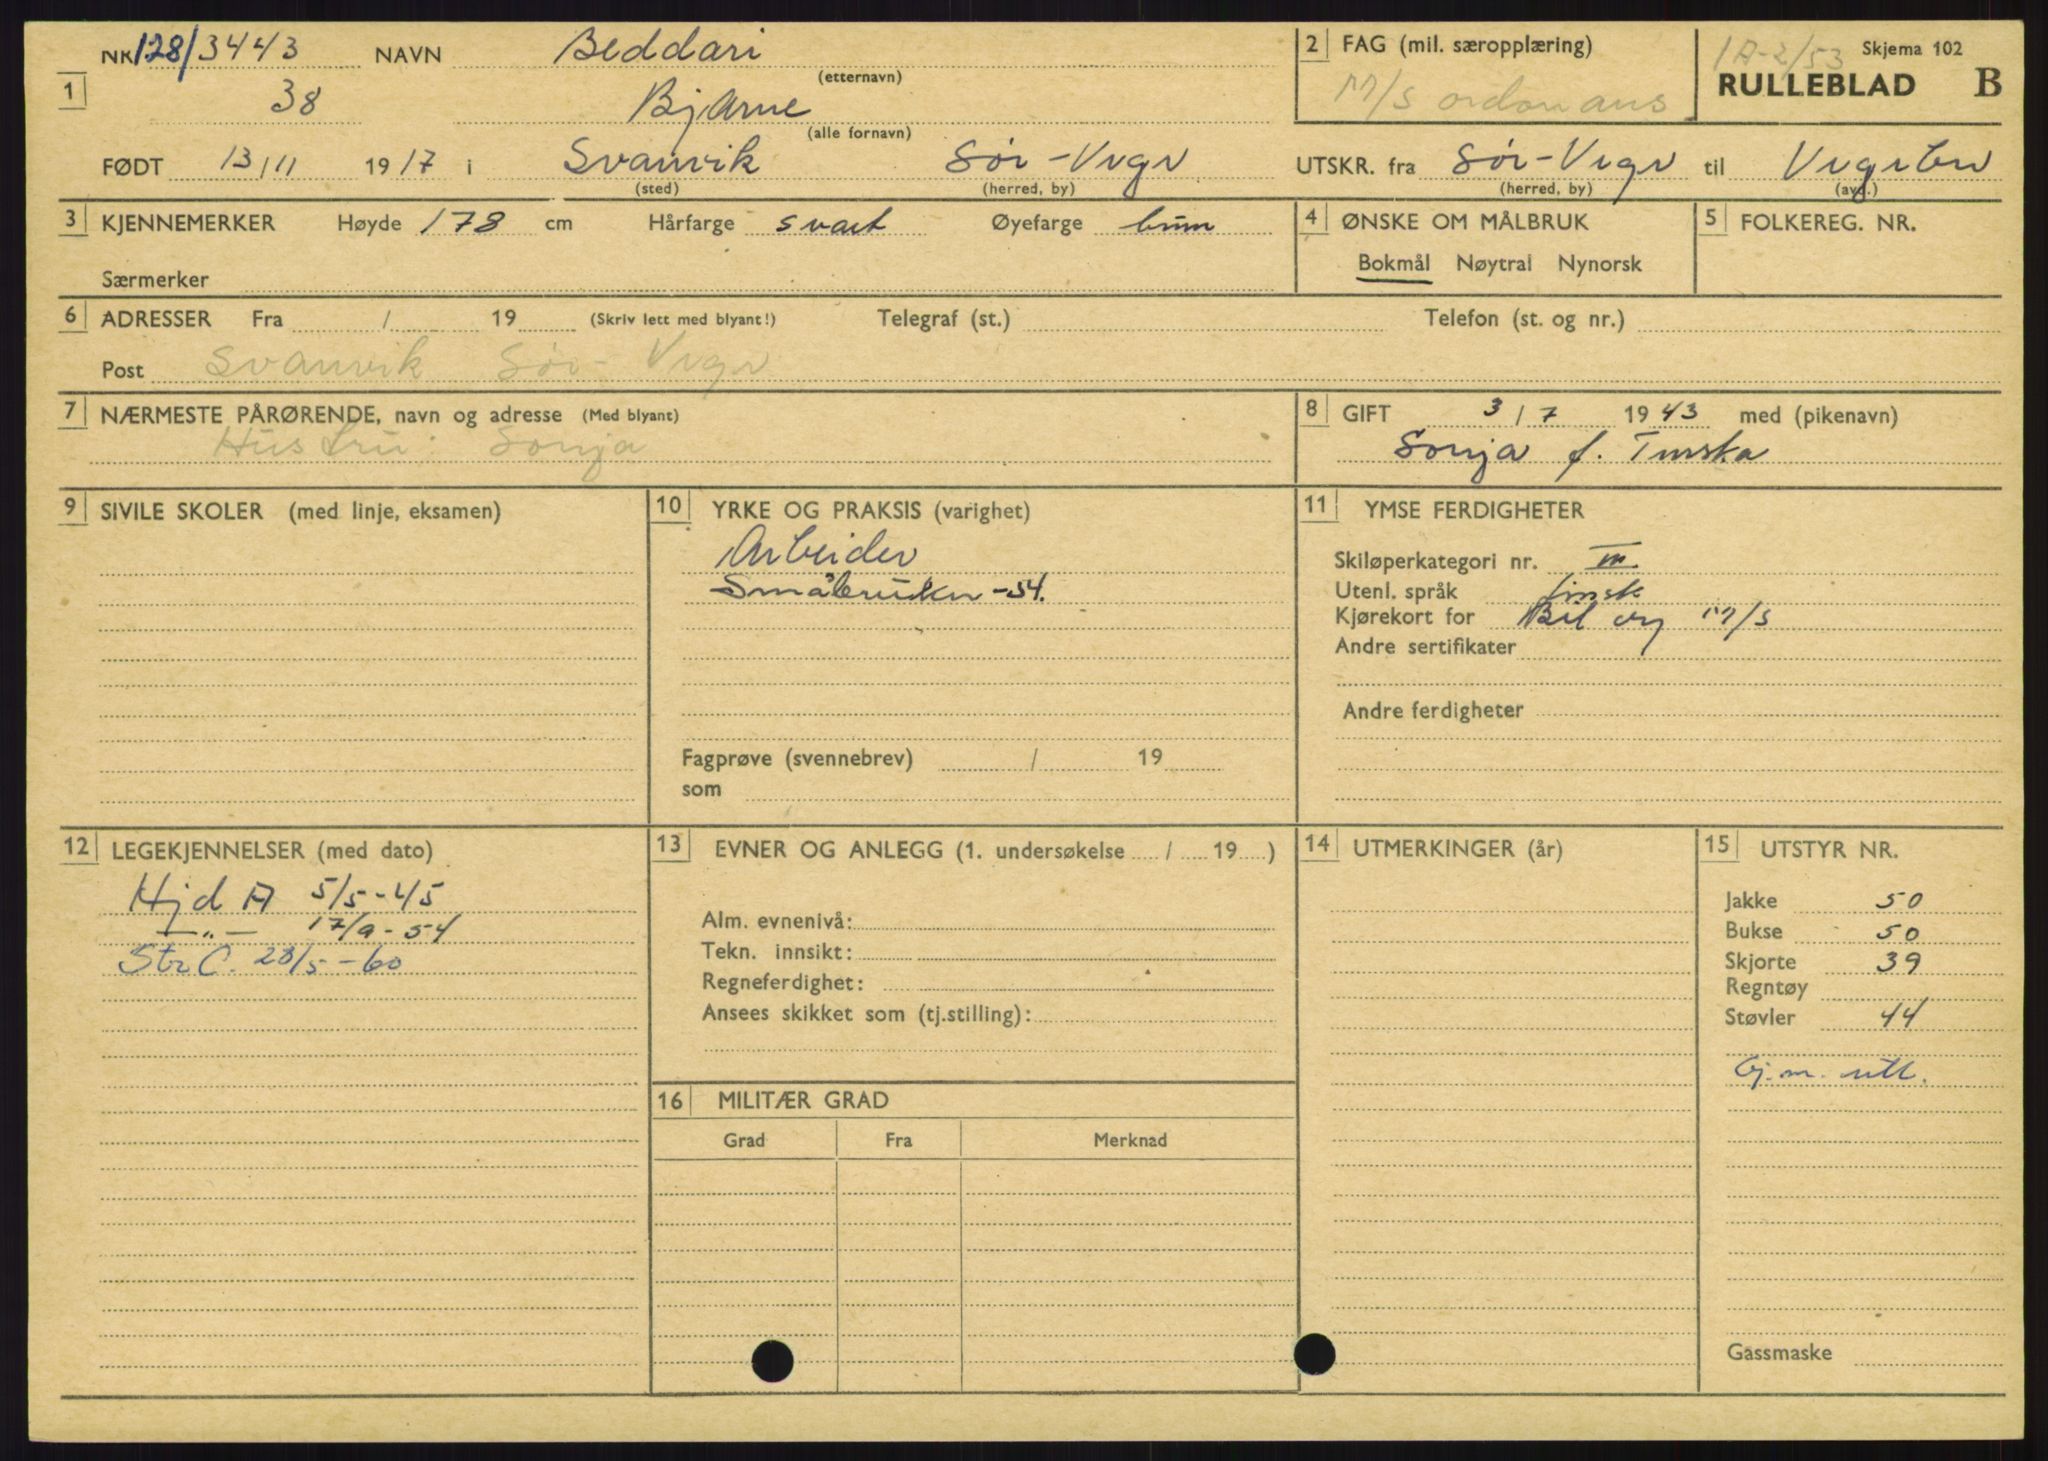 NR. 128/3443 NAVN Beddari (etternavn)
1 38 Bjarne (alle fornavn)
FØDT 13/11 1917 i Svanvik (sted) Sør-Vrgr (herred, by)
2 FAG (mil. særopplæring)
M/S ordonans
1A-2/53 Skjema 102
RULLEBLAD B
UTSKR. fra Sør-Vrgr (herred, by) til (avd.)
3 KJENNEMERKER Høyde 178 cm Hårfarge svart Øyefarge brun
Særmerker
4 ØNSKE OM MÅLBRUK
Bokmål Nøytral Nynorsk
5 FOLKEREG. NR.
6 ADRESSER Fra / 19 (Skriv lett med blyant!) Telegraf (st.) Telefon (st. og nr.)
Post Svanvik Sør-Vrgr
7 NÆRMESTE PÅRØRENDE, navn og adresse (Med blyant)
Hustru: Sonja
8 GIFT 3/7 1943 med (pikenavn)
Sonja f.
9 SIVILE SKOLER (med linje, eksamen)
10 YRKE OG PRAKSIS (varighet)
Arbeider
Småbruker -54.
Fagprøve (svennebrev) / 19
som
11 YMSE FERDIGHETER
Skiløperkategori nr. III
Utenl. språk finsk
Kjørekort for Bil og M/S
Andre sertifikater
Andre ferdigheter
12 LEGEKJENNELSER (med dato)
Hjd A 5/5-45
—"— 17/9-54
Str C. 28/5-60
13 EVNER OG ANLEGG (1. undersøkelse / 19 )
Alm. evnenivå:
Tekn. innsikt:
Regneferdighet:
Ansees skikket som (tj.stilling):
14 UTMERKINGER (år)
15 UTSTYR NR.
Jakke 50
Bukse 50
Skjorte 39
Regntøy
Støvler 44
Gj.m. utl.
Gassmaske
16 MILITÆR GRAD
Grad Fra Merknad